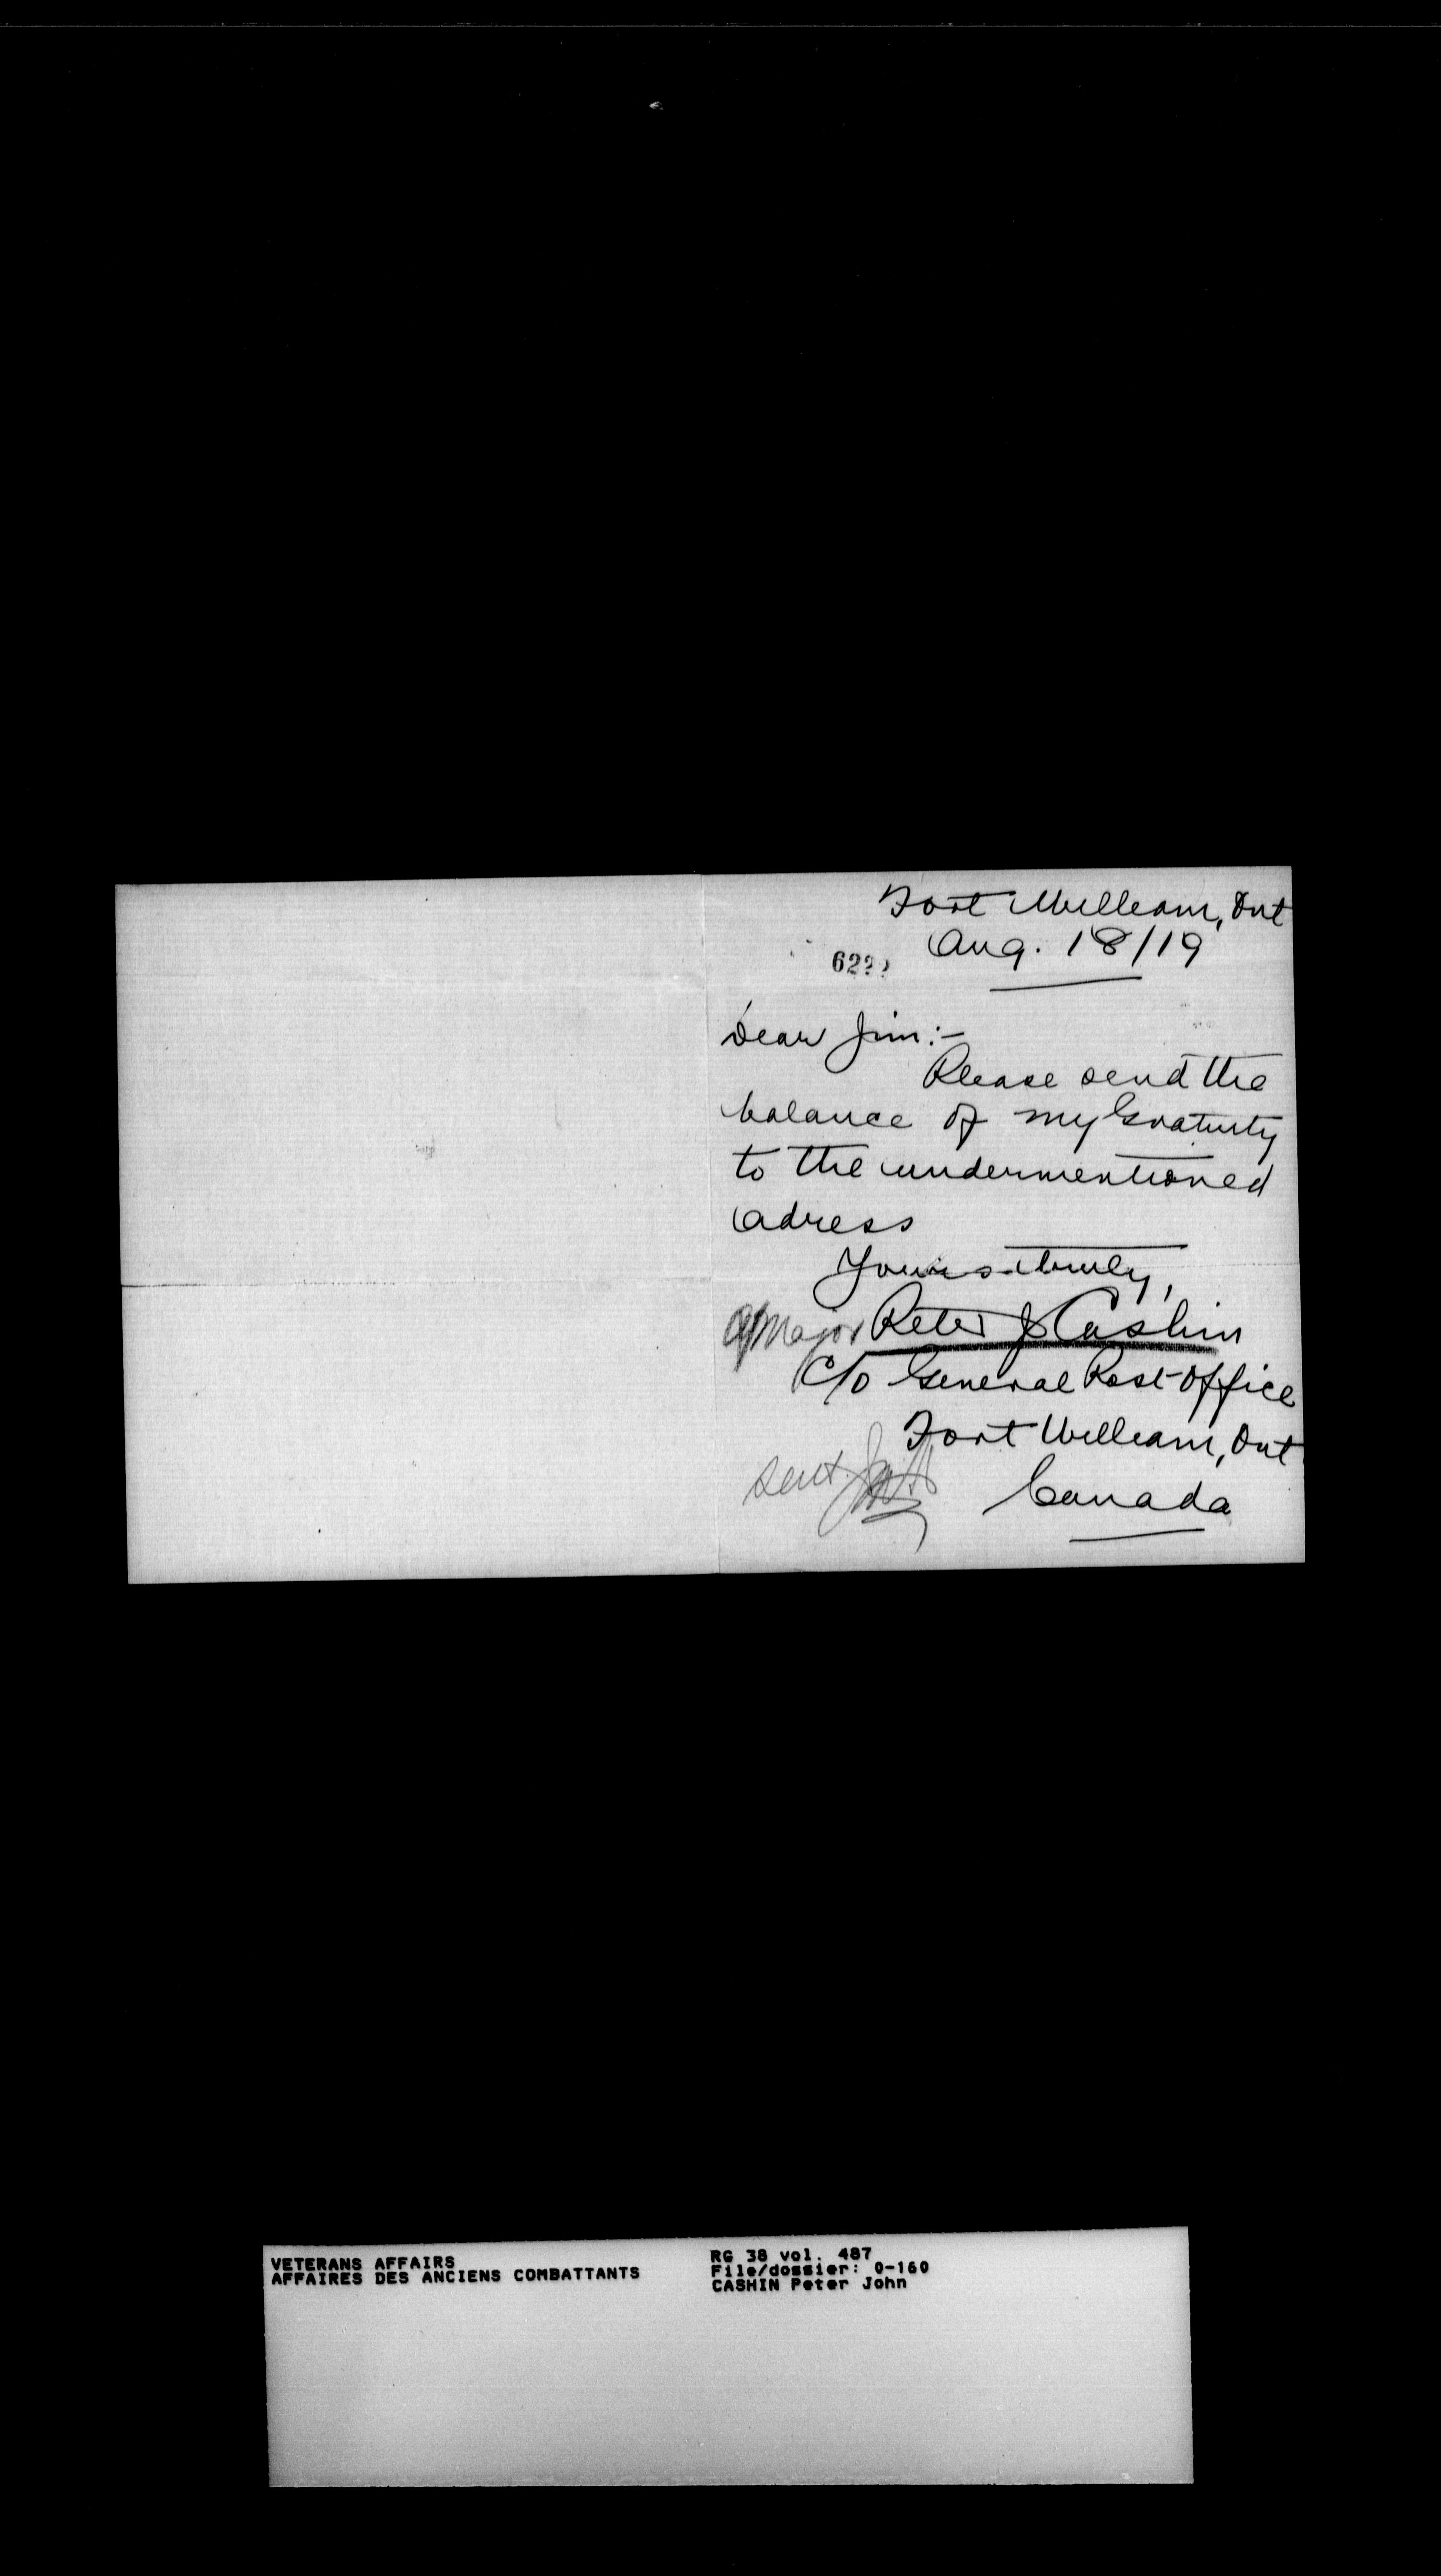 Fort William, Ont
Aug. 18/19
Dear Jim:-
Please send the
balance of my Gratuity
to the undermentioned
adress
Yours truly,
A/Major Peter J Cashin
C/o General Post Office
Fort William, Ont
Canada
sent
VETERANS AFFAIRS
AFFAIRES DES ANCIENS COMBATTANTS
RG 38 vol. 487
File/dossier: 0-160
CASHIN Peter John